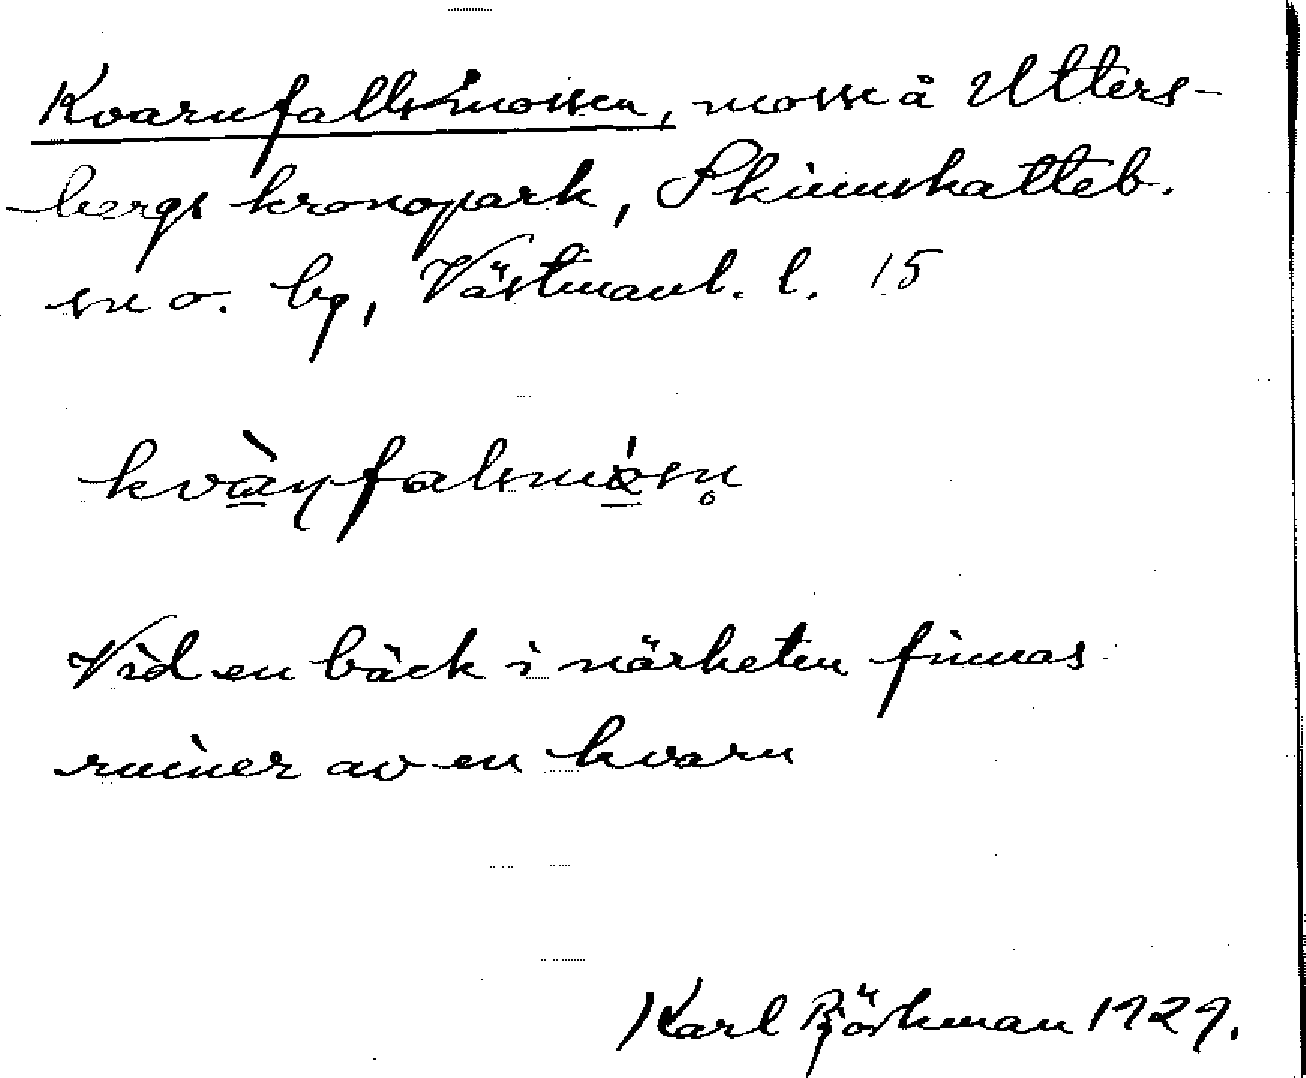 Kvarnfallsmossen, mosse å Utters-
bergs kronopark, Skinnskatteb.
sn o. bg, Västmanl. l. 15
kvàṇfalsmósn̥
Vid en bäck i närheten finnas
ruiner av en kvarn
Karl Björkman 1929.